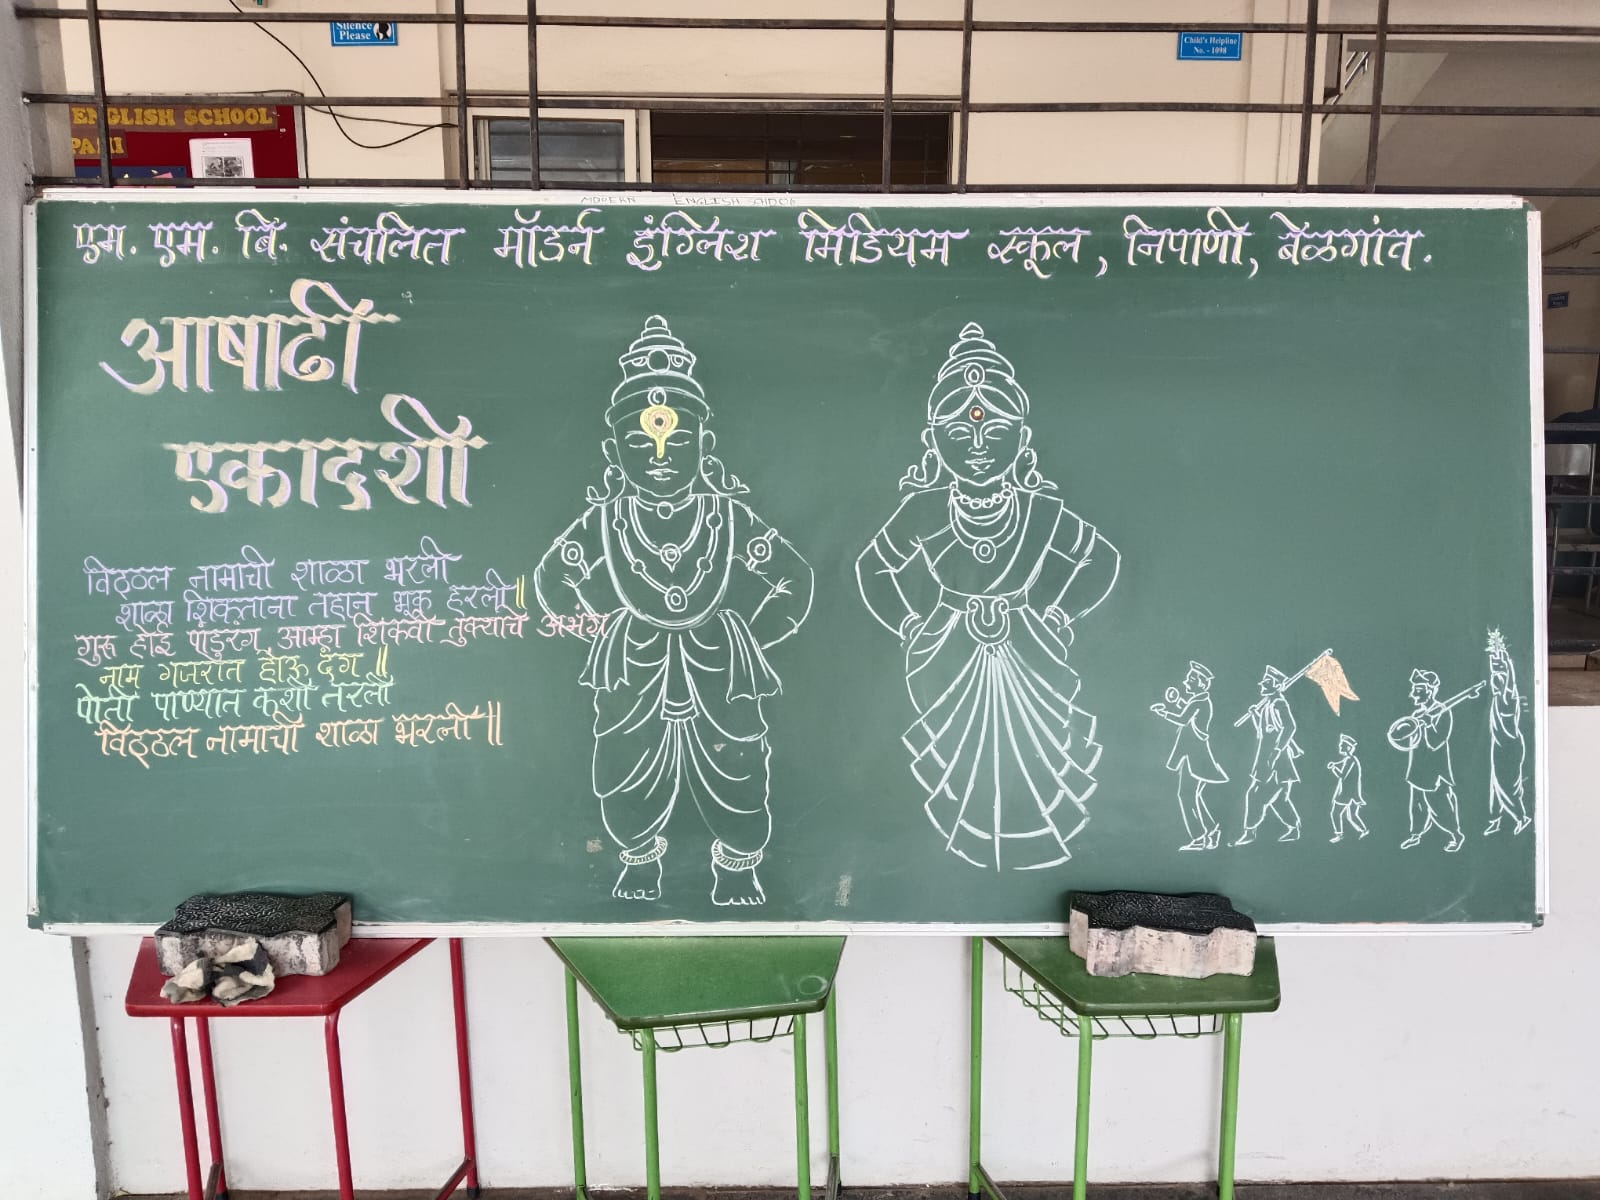 Silence
Please
Child's Helpline
No. - 1098
ENGLISH SCHOOL
PANI
MODERN ENGLISH SCHOOL
एम. एम. बि. संचलित मॉडर्न इंग्लिश मिडियम स्कूल, निपाणी, बेळगांव.
आषाढी
एकादशी
विठ्ठल नामाची शाळा भरली
शाळा शिकताना तहान भूक हरली॥
गुरू होई पांडुरंग, आम्हा शिकवी तुक्याचे अभंग
नाम गजरात होऊ दंग ॥
पोती पाण्यात कशी तरली
विठ्ठल नामाची शाळा भरली॥